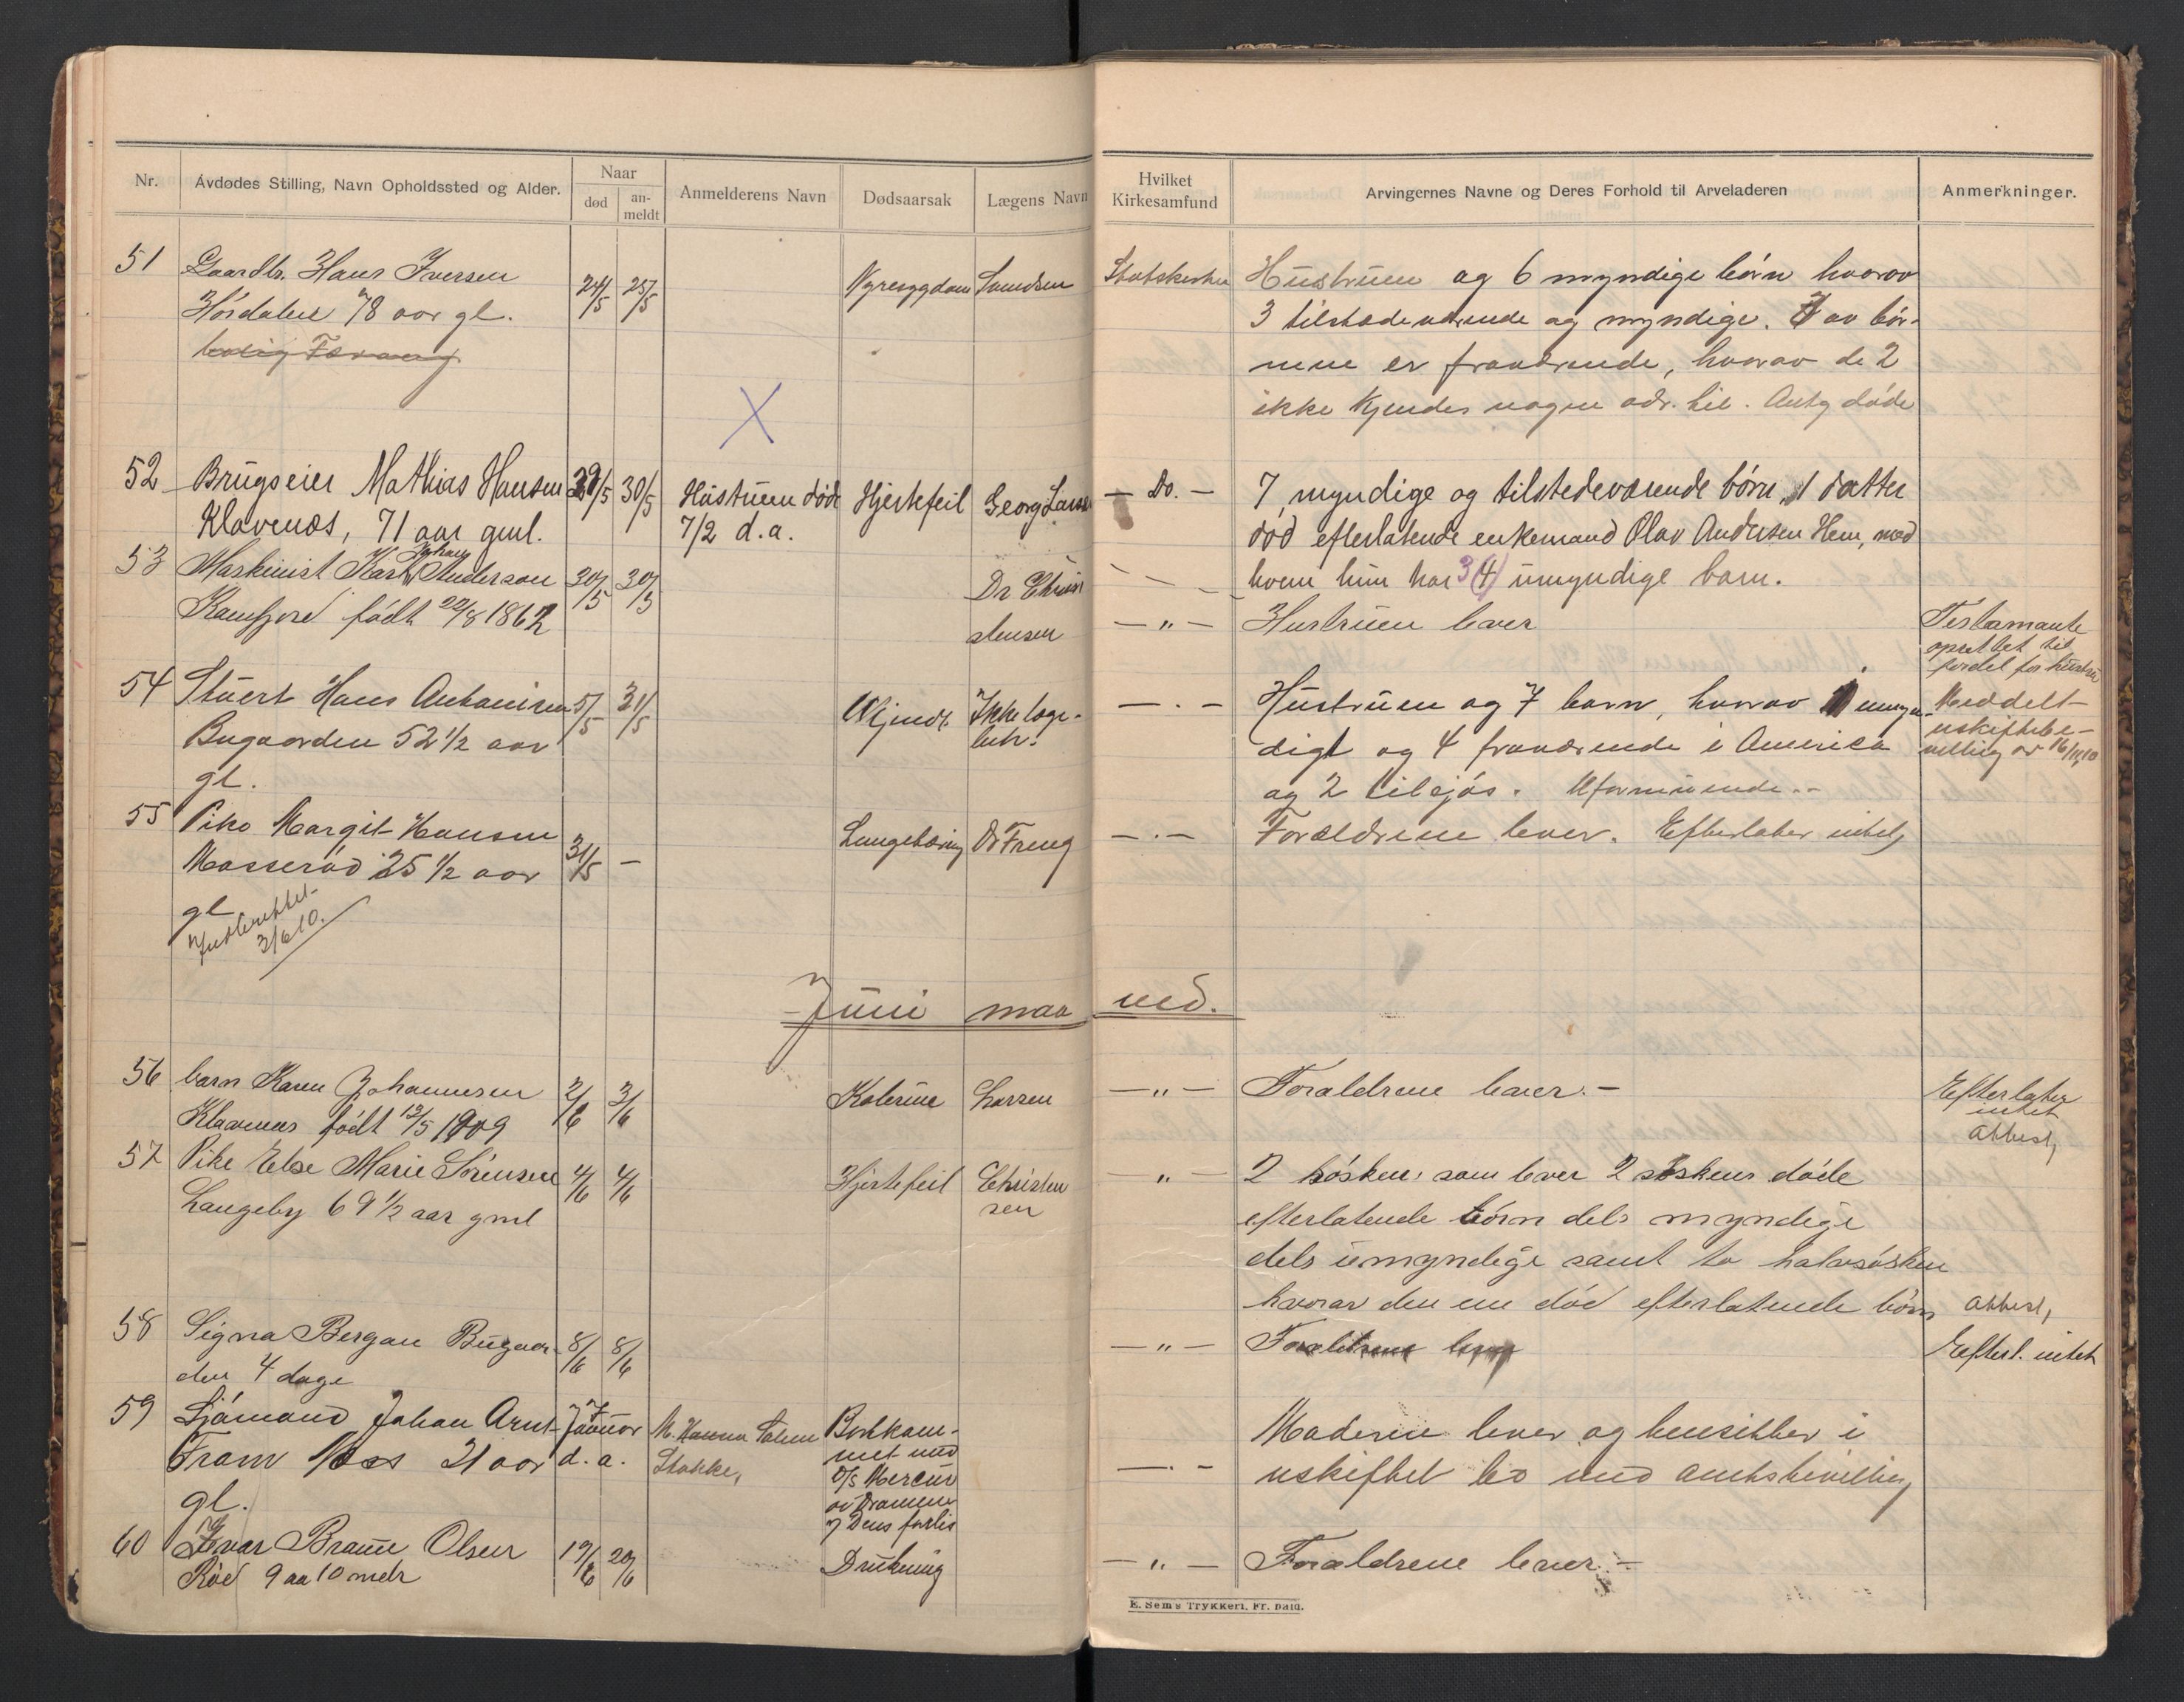 Nr.
Avdødes Stilling, Navn Opholdssted og Alder.
Naar
død
an-
meldt
Anmelderens Navn
Dødsaarsak
Lægens Navn
Hvilket
Kirkesamfund
Arvingernes Navne og Deres Forhold til Arveladeren
Anmerkninger.
51 Gaardbr. Hans Iversen 24/5 25/5 Nyresygdom Statskirken Hustruen og 6 myndige börn hvorav
78 aar gl. 3 tilstedeværende og myndige. av bör-
nene er fraværende, hvorav de 2
ikke kjendes nogen adr. til. Antg döde
X
52 Brugseier Mathias Hansen 29/5 30/5 Hustruen död Hjertefeil Georg Larsen — Do. — 7 myndige og tilstedeværende börn, 1 datter
Klavenæs, 71 aar gml. 7/2 d.a. död efterlatende enkemand Olav Andersen Hem, med
hvem hun har 3 (4) umyndige barn.
53 Maskinist Karl Johan Anderson 30/5 30/5 Dr Christensen — " — Hustruen lever
Kamfjord födt 22/8 1862
Testamente
oprettet til
fordel for hustru
54 Stuert Hans Antonisen 5/5 31/5 Ukjendt Ikke læge-
beh. — . — Hustruen og 7 barn, hvorav 1 umyn-
Bugaarden 52 1/2 aar
gl.
digt og 4 fraværende i America
og 2 tilsjös. Uformuende. -
Meddelt
uskiftebe-
villing av 16/11 10
55 Pike Margit Hansen 31/5 — Lungebetændelse Dr Freng — . — Forældrene lever. Efterlater intet
Masseröd 25 1/2 aar
gl
Indberettet
3/6 10.
Juni maaned.
56 barn Karen Johannesen 2/6 3/6 Larsen — " — Forældrene lever. —
Klavenes födt 12/5 1909
Efterlater
intet
Attest,
57 Pike Else Marie Sörensen 4/6 4/6 Hjertefeil Christen
sen " — 2 sösken som lever 2 söskens döde
Langeby 69 1/2 aar gml efterlatende börn dels myndige
dels umyndige samt to halvsösken
hvorav den ene död efterlatende börn Attest,
58 Signa Bergan Bugaar-
den 4 dage 8/6 8/6 — " — Forældrene lever Efterl. intet
59 Sjömand Johan Arnt
Fram 21 aar
gl. Januar
d. a. M. Hanna
Stokke, Bortkom-
met med
D/S Mercur
av Drammen
Dens forlis — . — Moderen lever og hensitter i
uskiftet bo med amtsbevilling
60 Ivar Braun Olsen 19/6 20/6 Drukning — " — Forældrene lever. —
Röd 9 aa 10 mdr
E. Sem's Trykkeri, Fr. hald.